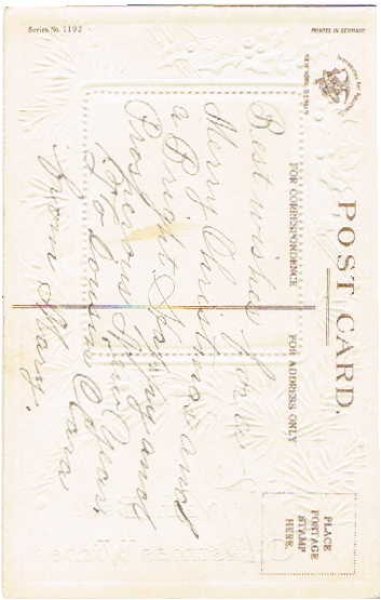 Series No. 1192
PRINTED IN GERMANY
NEW YORK, BERLIN
POST CARD.
FOR CORRESPONDENCE
FOR ADDRESS ONLY
PLACE
POSTAGE
STAMP
HERE.
Best wishes for a
Merry Christmas and
a Bright, Happy and
Prosperous New Year,
To Cousin Clara
from Mary.